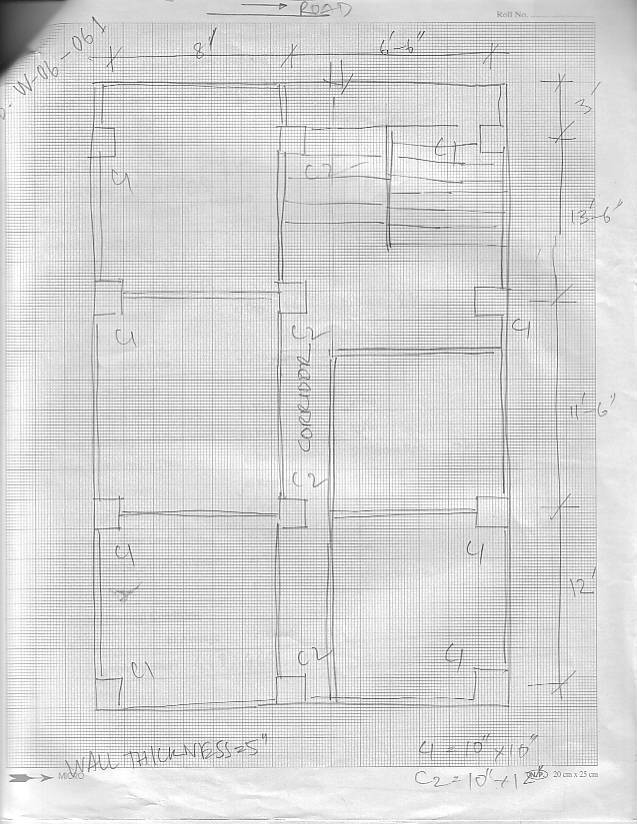 → ROAD
Roll No.
W-06-061
8'
6'-6"
3'
C1
C2
C1
13'-6"
C1
C2
C1
CORRIDOR
11'-6"
C2
C1
C1
12'
C1
C2
C1
WALL THICKNESS=5"
C1 = 10" x 10"
C2 = 10" x 12"
MICRO
20 cm x 25 cm